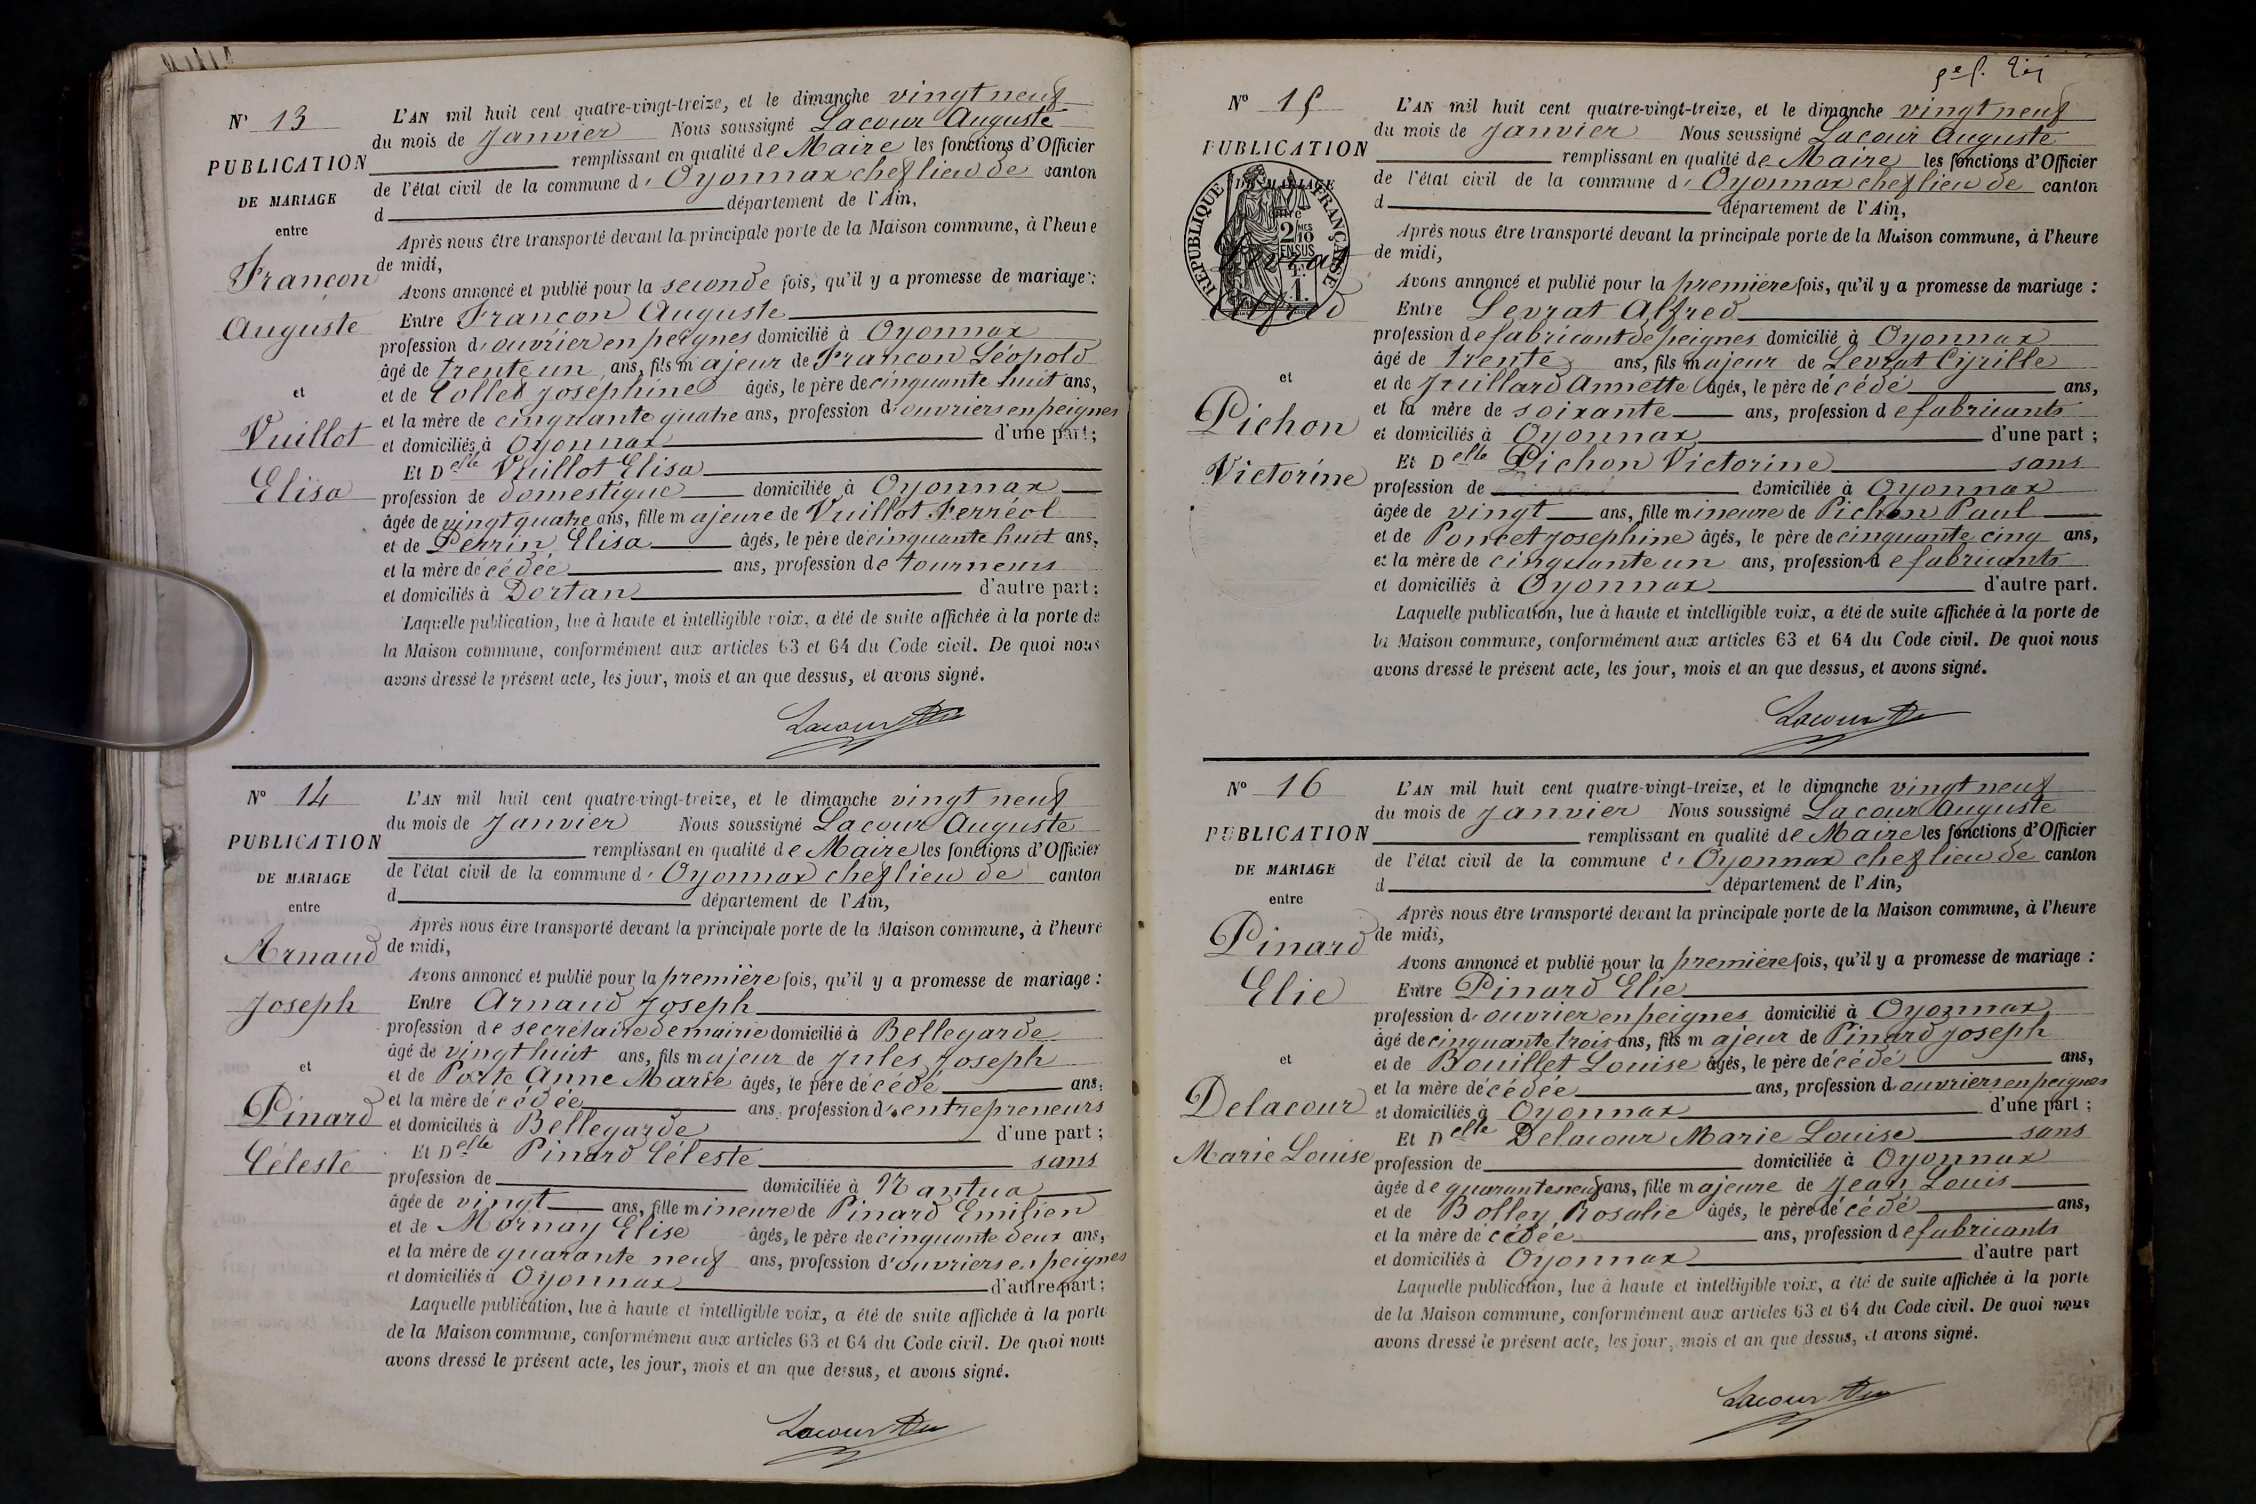 N° 13
PUBLICATION
DE MARIAGE
entre
Françon
Auguste
et
Vuillot
Elisa
L'AN mil huit cent quatre-vingt-treize, et le dimanche vingt neuf
du mois de Janvier Nous soussigné Lacour Auguste
remplissant en qualité de Maire les fonctions d'Officier
de l'état civil de la commune d' Oyonnax chef lieu de canton
d département de l'Ain,
Après nous être transporté devant la principale porte de la Maison commune, à l'heure
de midi,
Avons annoncé et publié pour la seconde fois, qu'il y a promesse de mariage :
Entre Françon Auguste
profession d' ouvrier en peignes domicilié à Oyonnax
âgé de trente un ans, fils majeur de Françon Léopold
et de Collet Joséphine âgés, le père de cinquante huit ans,
et la mère de cinquante quatre ans, profession d' ouvriers en peignes
et domiciliés à Oyonnax d'une part ;
Et Delle Vuillot Elisa
profession de domestique domiciliée à Oyonnax
âgée de vingt quatre ans, fille majeure de Vuillot Ferréol
et de Perrin Elisa âgés, le père de cinquante huit ans,
et la mère décédée ans, profession de tourneurs
et domiciliés à Dortan d'autre part ;
Laquelle publication, lue à haute et intelligible voix, a été de suite affichée à la porte de
la Maison commune, conformément aux articles 63 et 64 du Code civil. De quoi nous
avons dressé le présent acte, les jour, mois et an que dessus, et avons signé.
Lacour
N° 14
PUBLICATION
DE MARIAGE
entre
Arnaud
Joseph
et
Pinard
Céleste
L'AN mil huit cent quatre-vingt-treize, et le dimanche vingt neuf
du mois de Janvier Nous soussigné Lacour Auguste
remplissant en qualité de Maire les fonctions d'Officier
de l'état civil de la commune d' Oyonnax chef lieu de canton
d département de l'Ain,
Après nous être transporté devant la principale porte de la Maison commune, à l'heure
de midi,
Avons annoncé et publié pour la première fois, qu'il y a promesse de mariage :
Entre Arnaud Joseph
profession de secrétaire de mairie domicilié à Bellegarde
âgé de vingt huit ans, fils majeur de Jules Joseph
et de Porte Anne Marie âgés, le père décédé ans,
et la mère décédée ans, profession d' entrepreneurs
et domiciliés à Bellegarde d'une part ;
Et Delle Pinard Céleste sans
profession de domiciliée à Nantua
âgée de vingt ans, fille mineure de Pinard Emilien
et de Mornay Elise âgés, le père de cinquante deux ans,
et la mère de quarante neuf ans, profession d' ouvriers en peignes
et domiciliés à Oyonnax d'autre part ;
Laquelle publication, lue à haute et intelligible voix, a été de suite affichée à la porte
de la Maison commune, conformément aux articles 63 et 64 du Code civil. De quoi nous
avons dressé le présent acte, les jour, mois et an que dessus, et avons signé.
Lacour
N° 15
PUBLICATION
DE MARIAGE
entre
REPUBLIQUE FRANÇAISE
2/10 EN SUS
Levrat
Alfred
et
Pichon
Victorine
L'AN mil huit cent quatre-vingt-treize, et le dimanche vingt neuf
du mois de Janvier Nous soussigné Lacour Auguste
remplissant en qualité de Maire les fonctions d'Officier
de l'état civil de la commune d' Oyonnax chef lieu de canton
d département de l'Ain,
Après nous être transporté devant la principale porte de la Maison commune, à l'heure
de midi,
Avons annoncé et publié pour la première fois, qu'il y a promesse de mariage :
Entre Levrat Alfred
profession de fabricant de peignes domicilié à Oyonnax
âgé de trente ans, fils majeur de Levrat Cyrille
et de Juillard Annette âgés, le père décédé ans,
et la mère de soixante ans, profession de fabricants
et domiciliés à Oyonnax d'une part ;
Et Delle Pichon Victorine sans
profession de domiciliée à Oyonnax
âgée de vingt ans, fille mineure de Pichon Paul
et de Poncet Joséphine âgés, le père de cinquante cinq ans,
et la mère de cinquante un ans, profession de fabricants
et domiciliés à Oyonnax d'autre part.
Laquelle publication, lue à haute et intelligible voix, a été de suite affichée à la porte de
la Maison commune, conformément aux articles 63 et 64 du Code civil. De quoi nous
avons dressé le présent acte, les jour, mois et an que dessus, et avons signé.
Lacour
N° 16
PUBLICATION
DE MARIAGE
entre
Pinard
Elie
et
Delacour
Marie Louise
L'AN mil huit cent quatre-vingt-treize, et le dimanche vingt neuf
du mois de Janvier Nous soussigné Lacour Auguste
remplissant en qualité de Maire les fonctions d'Officier
de l'état civil de la commune d' Oyonnax chef lieu de canton
d département de l'Ain,
Après nous être transporté devant la principale porte de la Maison commune, à l'heure
de midi,
Avons annoncé et publié pour la première fois, qu'il y a promesse de mariage :
Entre Pinard Elie
profession d' ouvrier en peignes domicilié à Oyonnax
âgé de cinquante trois ans, fils majeur de Pinard Joseph
et de Bouillet Louise âgés, le père décédé ans,
et la mère décédée ans, profession d' ouvriers en peignes
et domiciliés à Oyonnax d'une part ;
Et Delle Delacour Marie Louise sans
profession de domiciliée à Oyonnax
âgée de quarante neuf ans, fille majeure de Jean Louis
et de Bolley Rosalie âgés, le père décédé ans,
et la mère décédée ans, profession de fabricants
et domiciliés à Oyonnax d'autre part
Laquelle publication, lue à haute et intelligible voix, a été de suite affichée à la porte
de la Maison commune, conformément aux articles 63 et 64 du Code civil. De quoi nous
avons dressé le présent acte, les jour, mois et an que dessus, et avons signé.
Lacour